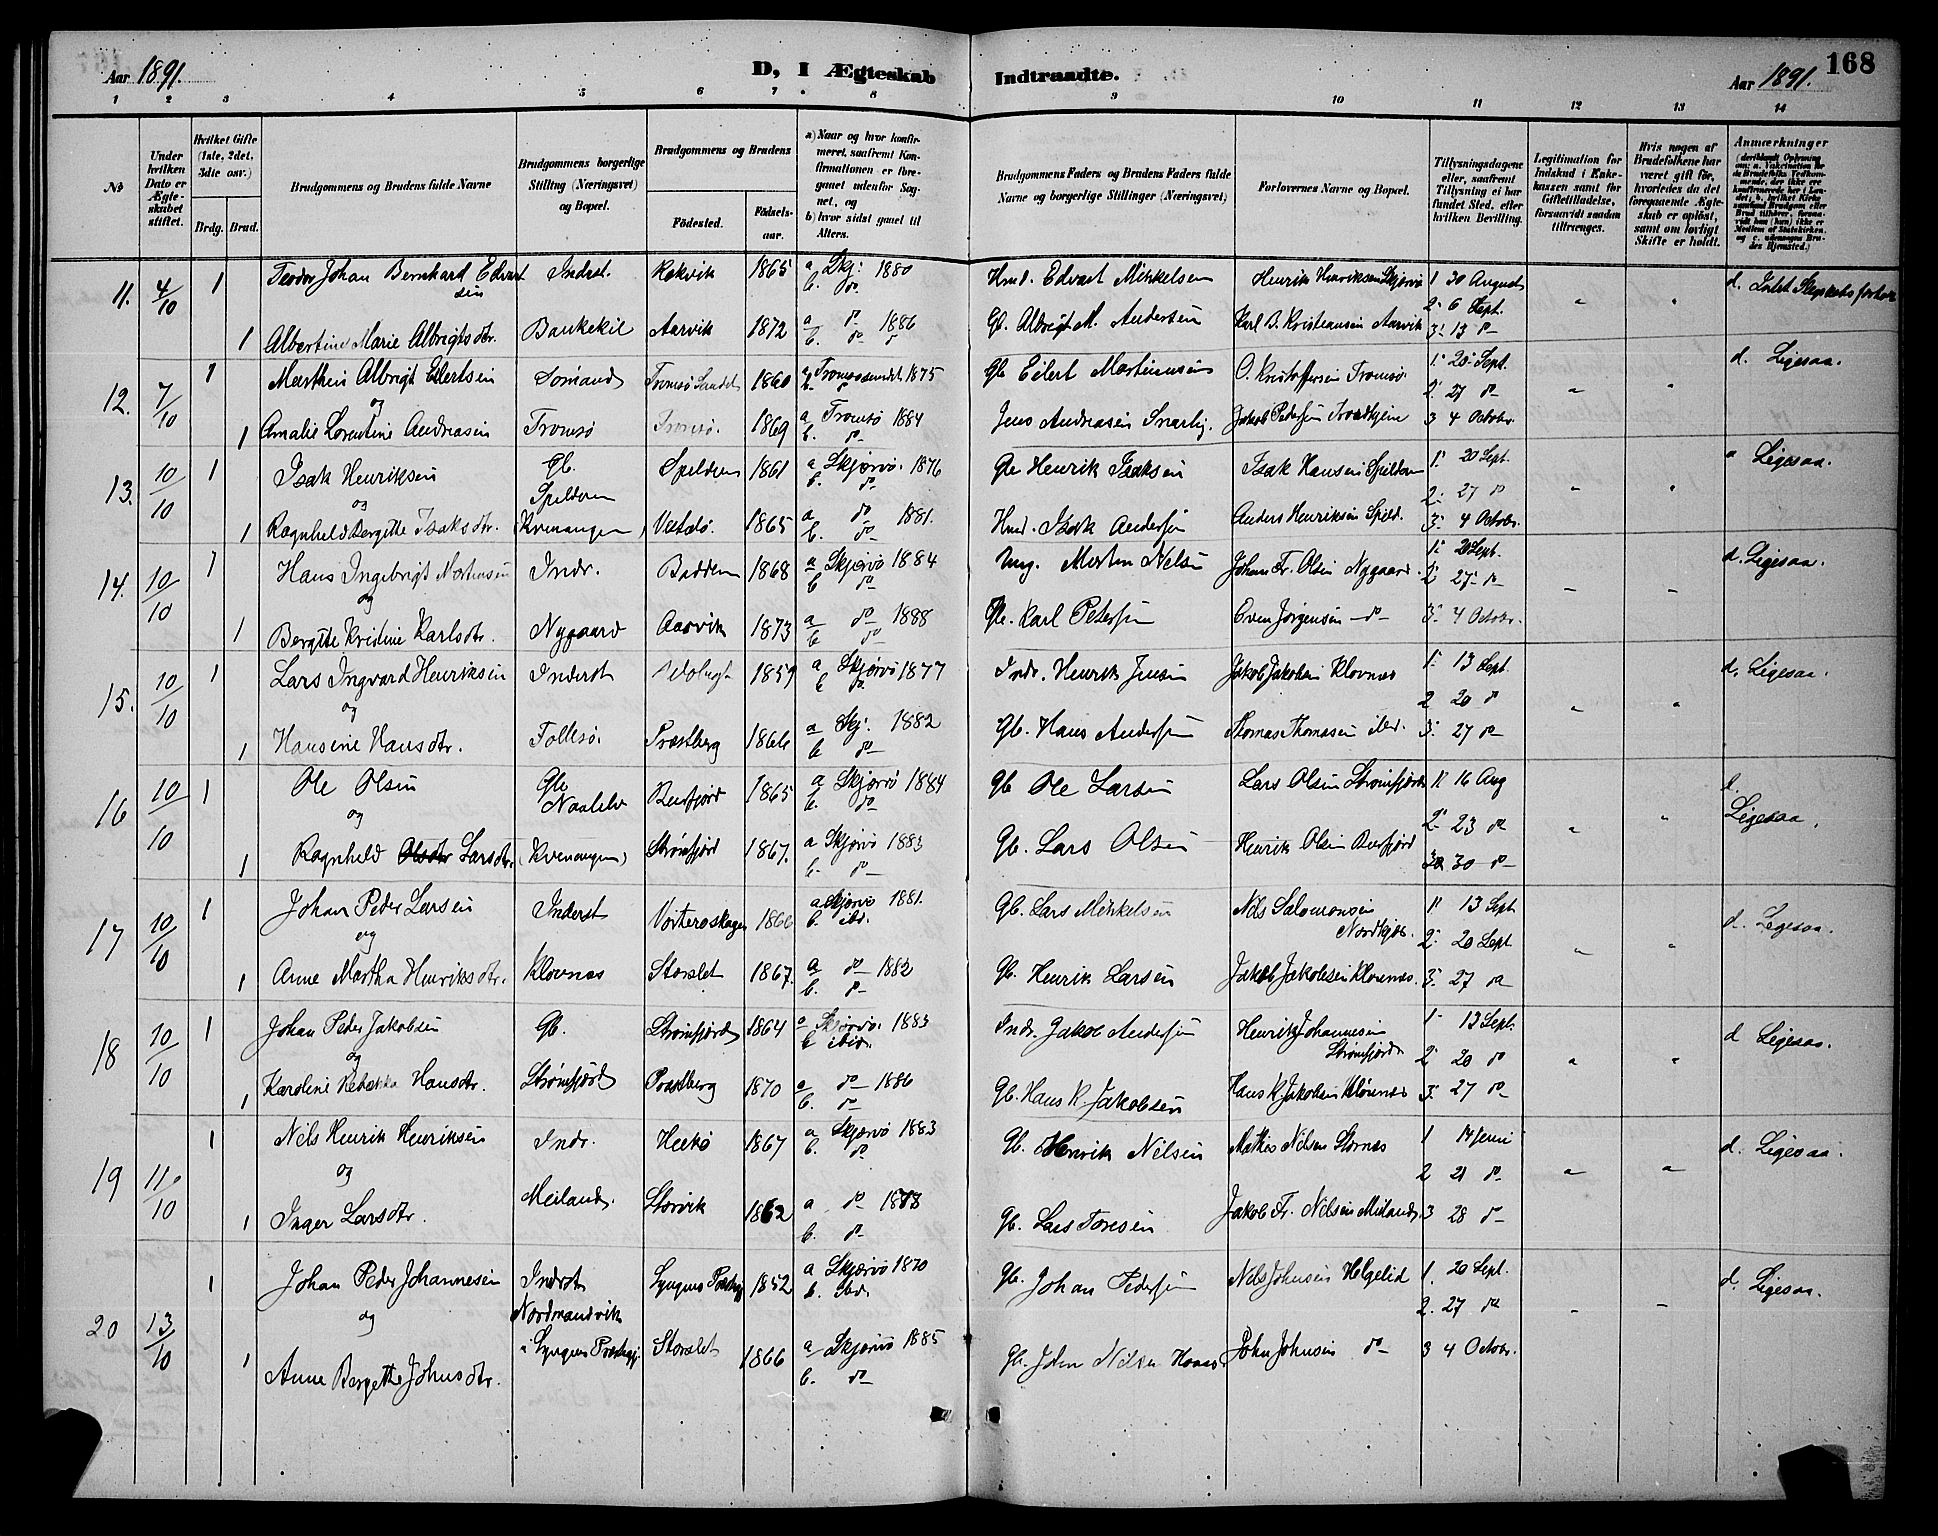 Aar 1891.
D, I Ægteskab Indtraadte.
Aar 1891. 168
1 2 3 4 5 6 7 8 9 10 11 12 13 14
No
Under hvilken Dato er Ægteskabet stiftet.
Hvilket Gifte (1ste, 2det, 3die osv.)
Brdg. Brud.
Brudgommens og Brudens fulde Navne
Brudgommens borgerlige Stilling (Næringsvei) og Bopæl.
Brudgommens og Brudens
Fødested. Fødsels-aar.
a) Naar og hvor konfirmeret, saafremt Konfirmationen er foregaaet udenfor Sognet, og
b) hvor sidst gaaet til Alters.
Brudgommens Faders og Brudens Faders fulde Navne og borgerlige Stillinger (Næringsvei)
Forlovernes Navne og Bopæl.
Tillysningsdagene eller, saafremt Tillysning ei har fundet Sted, efter hvilken Bevilling.
Legitimation for Indskud i Enkekassen samt for Giftetilladelse, forsaavidt saadan tiltrænges.
Hvis nogen af Brudefolkene har været gift før, hvorledes da det foregaaende Ægteskab er opløst, samt om lovligt Skifte er holdt.
Anmærkninger
11. 4/10 1 Teodor Johan Bernhard Edvartsen Inderst. Rekvik 1865 a Skj: 1880 b. do. Hmd. Edvart Mikkelsen Henrik Henriksen Skjervø 1 30 August
2 6 Sept.
1 Albertine Marie Albrigtsdtr. Baukekil Aarvik 1872 a do 1886 b. do Gb. Albrigt M. Andersen Karl B. Kristiansen Aarvik 3: 13 do d. Intet Slegtskab forhor
12. 7/10 1 Marthin Albrigt Eilertsen Sømand Tromsø Sundet 1860 Tromsøsundet 1875 Gb Eilert Martinusen O. Kristoffersen Tromsø 1: 20 Sept.
og 2: 27 do d. Ligesaa.
1 Amalie Lorentine Andreasen Tromsø Tromsø. 1869 a Tromsø 1884 b. do Jens Andreasen Snarby. Jakob Pedersen Trondhjem 3 4 Octobr.
13. 10/10 1 Isak Henriksen Gb. Spildren Spildren 1861 a Skjervø. 1876 b. do Gb Henrik Isaksen Isak Hansen Spildren 1: 20 Sept.
og 2: 27 do Ligesaa.
1 Ragnheld Bergitte Isaksdtr. (Kvenangen) 1865 a do 1881. b. do Hmd. Isak Andersen Anders Henriksen Spild. 3: 4 Octobr.
14. 10/10 1 Hans Ingebrigt Mortensen Indr. Badderen 1868 a Skjervø 1884 b do Ung. Morten Nelsen Johan Fr. Olsen Nygaard. 1: 20 Sept.
og 2 27 do d. Ligesaa.
1 Bergitte Kristine Karlsdtr. Nygaard Aarvik 1873 a do 1888 b do Gb. Karl Petersen Even Jørgensen do 3: 4 Octobr.
15. 10/10 1 Lars Ingvard Henriksen Inderst 1859 a Skjervø 1877 b do. Indr. Henrik Jensen Jakob Jakobsen Klovnæs 1: 13 Sept.
og 2 20 do d. Ligesaa.
1 Hansine Hansdtr. Follesø. Præstberg 1866 a Skj: 1882 b do Gb. Hans Andersen Thomas Thomasen ibd. 3: 27 do
16 10/10 1 Ole Olsen Gb Naalelv Burfjord 1865 a Skjervø 1884 b. do Gb Ole Larsen Lars Olsen Strømfjord 1: 16 Aug
og 2: 23 do d. Ligesaa.
1 Ragnheld Olsdtr Larsdtr. (Kvenangen) Strømfjord 1867. a Skjervø 1883 b. do Gb. Lars Olsen Henrik Olsen Burfjord 3 30 do
17 10/10 1 Johan Peder Larsen Inderst Vorteroskagen 1866 a Skjervø 1881. b. ibd. Gb. Lars Mikkelsen Nils Salomonsen 1: 13 Sept
og 2: 20 Sept. d. Ligesaa.
1 Anne Martha Henriksdtr. Klovnæs Storslet 1867. a do 1882 b. do Gb. Henrik Larsen Jakob Jakobsen Klovnæs. 3: 27 do
18 10/10 1 Johan Peder Jakobsen Gb. Strømfjord 1864 a Skjervø. 1883 b ibid. Indr. Jakob Andersen Henrik Johannesen Strømfjord 1 13 Sept.
og 2 20 do d Ligesaa.
1 Karoline Rebekka Hansdtr. Strømfjord Præstberg 1870 a do 1886 b. do Gb. Hans P. Jakobsen Hans P. Jakobsen Klovnæs 3: 27 do
19 11/10 1 Nils Henrik Henriksen Indr. Hekø 1867 a Skjervø 1883 b. do Gb. Henrik Nilsen Mathis Nilsen Stornæs 1 14 Juni
og 2 21 do d. Ligesaa.
1 Inger Larsdtr. Meiland. Storvik 1862 a do 1878 b. do Gb. Lars Toresen Jakob Fr. Nilsen Meiland. 3 28 do
20 13/10 1 Johan Peder Johannesen Inderst Nordmandvik Lyngens Præstegj 1852 a Skjervø 1870 b. ibd. Gb. Johan Pedersen Nils Johnsen Helgelid 1. 20 Sept.
og 2. 27 do d. Ligesaa.
1 Anne Bergette Johnsdtr. i Lyngens Præstegj. Storslet 1866 a Skjervø 1885 b. do Gb. John Nilsen John Johnsen do 3 4 Octobr.